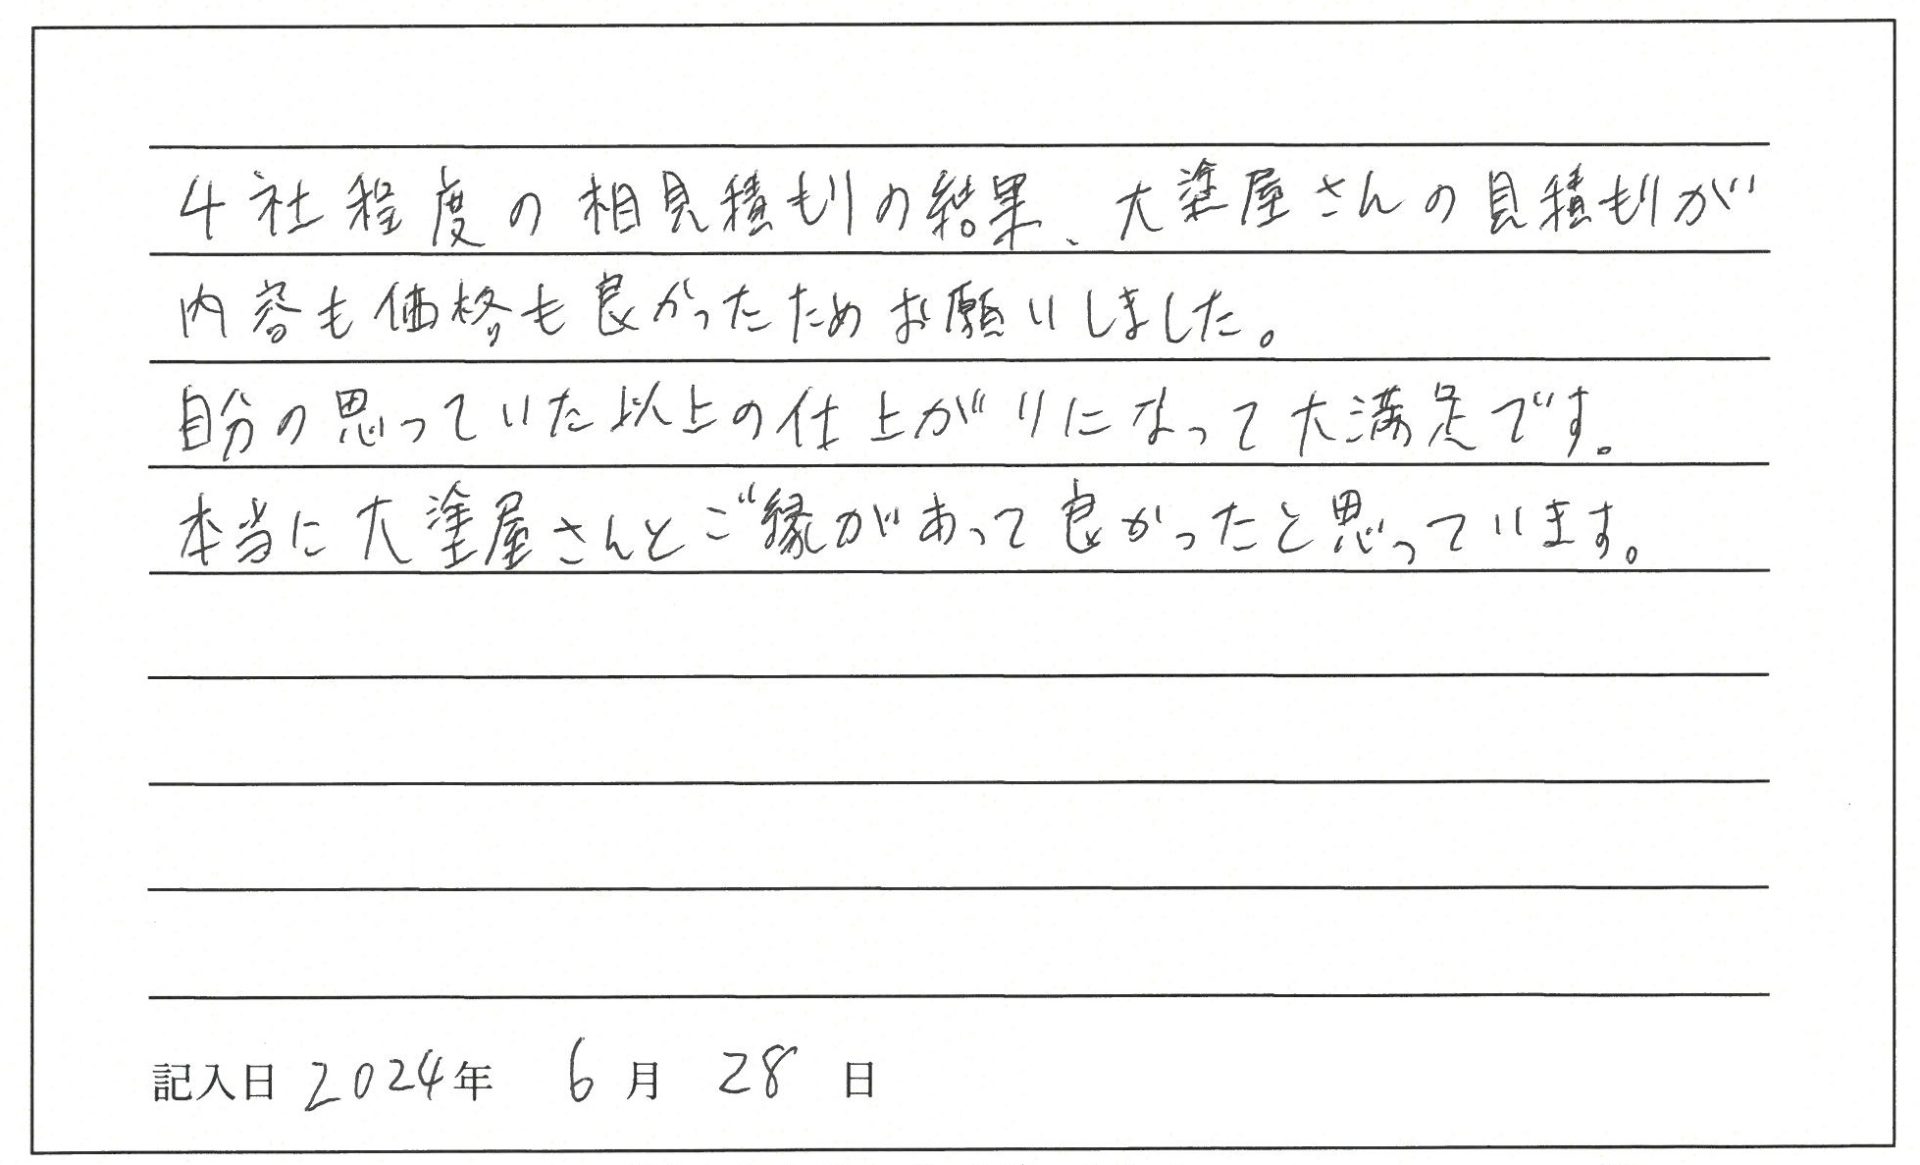 4社程度の相見積もりの結果、大塗屋さんの見積もりが
内容も価格も良かったためお願いしました。
自分の思っていた以上の仕上がりになって大満足です。
本当に大塗屋さんとご縁があって良かったと思っています。
記入日 2024年 6月 28日